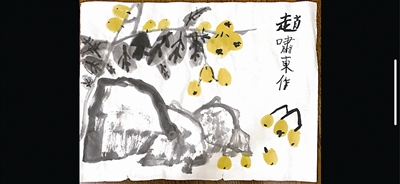 趙嘯東作